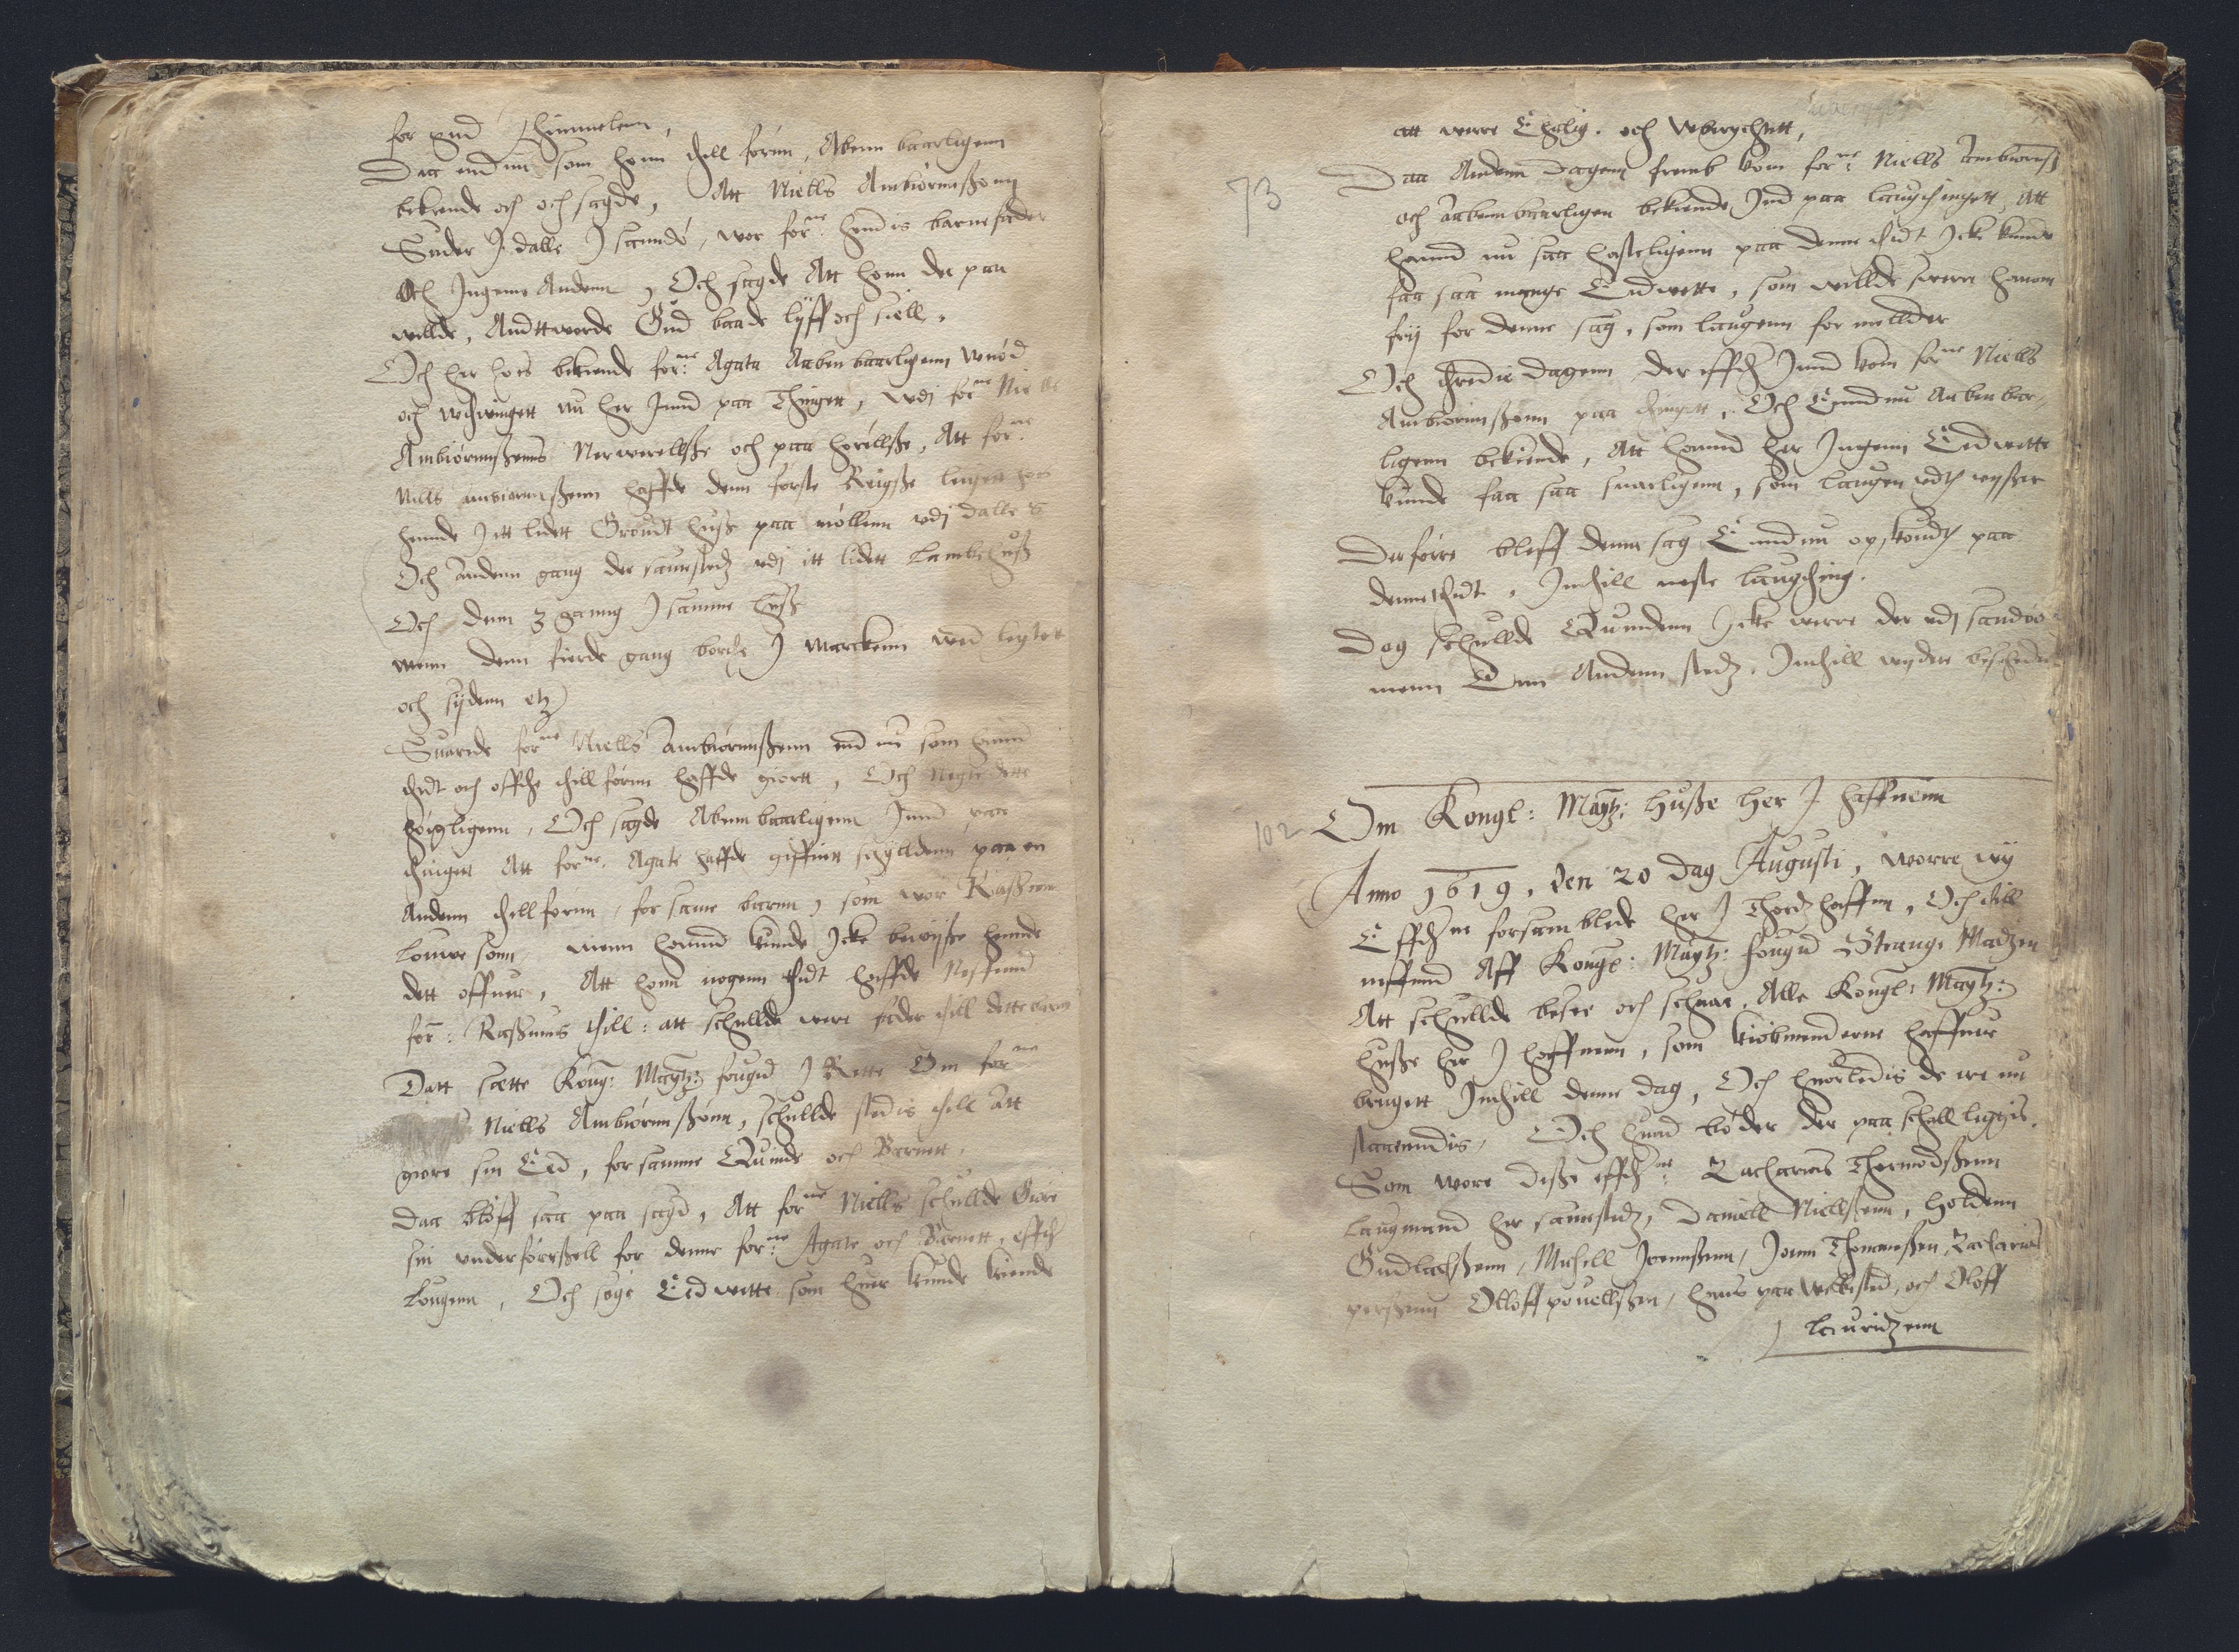 for gud J himmelenn,
Daa end nu som honn thill forrnn, Abenn baarligenn
bekende och och sagde, Att Niells Ambiörnnßonn
Suder J dalle J sanndö, wor forne: hendis barnefader
Och Jngenn Andenn, Och sagde Att honn der paa
willde, Andttworde Gud baade lyff och siell,
Och her hois bekende forne: Agata Aabenbaarligenn wnöd
och wthwinngett nu her Jnnd paa Thingett, wdj forne Niells
Ambiörnnßenns Nerwerellße och paa hörellße, Att forne:
Nills ambiornnßenn haffde denn förste Reigße leigett hoes
hennde J itt lidett Groudt huße paa möllenn wdj dalle
Och andenn gang der samestedz wdj itt lidett Lambehuß
Och denn 3 ganng J samme huße
menn denn fierde gang borthe J Marckenn
och sydenn etz
Suarede forne Niells Ambiörnnßenn end nu som hannd
thidt och offthe thill förnn haffde giortt, Och Negte dette
höigligenn, Och sagde Abennbaarligenn Jnnd paa
thingett Att forne. Agate haffde giffuett schylldenn paa en
Andenn thillforrnn, for same barnn, som wor Raßmus
Louwe sonn, menn hannd kunde Jcke bewyße hennde
dett offuer, Att honn nogenn thidt haffde Neffnnd
for: Raßmus thill: att schullde were fader thill dette barnn
Datt sætte Kong: Maytz: fougid J Rette Om forne
Niells Ambiörnnßönn, schullde stedis thill att
giöre sin Eed, for samme Quinde och Barnett,
Daa blöff saa paa sagd, Att forne Niells schullde Giöre
sin vnderförrßell for denne forne: Agate och Barnett, effther
Lougenn, Och söge Eedwitte som huer kunde kiende
att were Ehrlig. och wberychtitt,
73
Daa Andenn dagenn fremb kom forne: Niells Ambiörnß
och aabennbaarligen bekiende Jnd paa laugthingett, Att
hannd nu saa hasteligenn paa denne thidt Jcke kunde
faa saa mange Eedwitte, som willde swere hanom
frij for denne sag, som laugenn for melder
Och thredie dagenn der effther Jnnd kom forne Niells
Ambiörnnßönn paa thingett, Och Eend nu Aabenbar-
ligenn bekiende, Att hannd her Jngenn Eedwitte
kunde faa saa snarligenn, som laugen wdthwyßer
Derforre bleff denne sag Eend nu opskoudth paa
dennethidt, Jnthill neste laugthing.
Dog schullde Quindenn Jcke were der wdj sandöe
menn Enn Andenn stedz, Jnthill wydere beschedenn
102
Om Kongl: Maytz: Huße Her J haffnenn
Anno 1619, den 20 dag Augusti, worre wy
Effthne forsamblede her J Thordz haffnn, Och thill
neffnnd Aff Kongl: Maytz: fougid Strange Madzen
Att schullde besee och schue, Alle Kongl: Maytz:
huße her J haffnenn, som kiöbmenderne haffuer
brugett Jnthill denne dag, Och huorledis de ere nu
staaenndis, Och huad bö der der paa schall leggis.
Som wore diße effthne: Zacharias Thormodßenn
Laugmannd her samestedz, Daniell Niellßenn, Holdenn
Gudlachßenn, Michell Joennßenn, Jonn Thomeßen, Zacharias
perßenn Olloff pouellßen, hans paa Wellestad, och Oloff
Lauridzenn